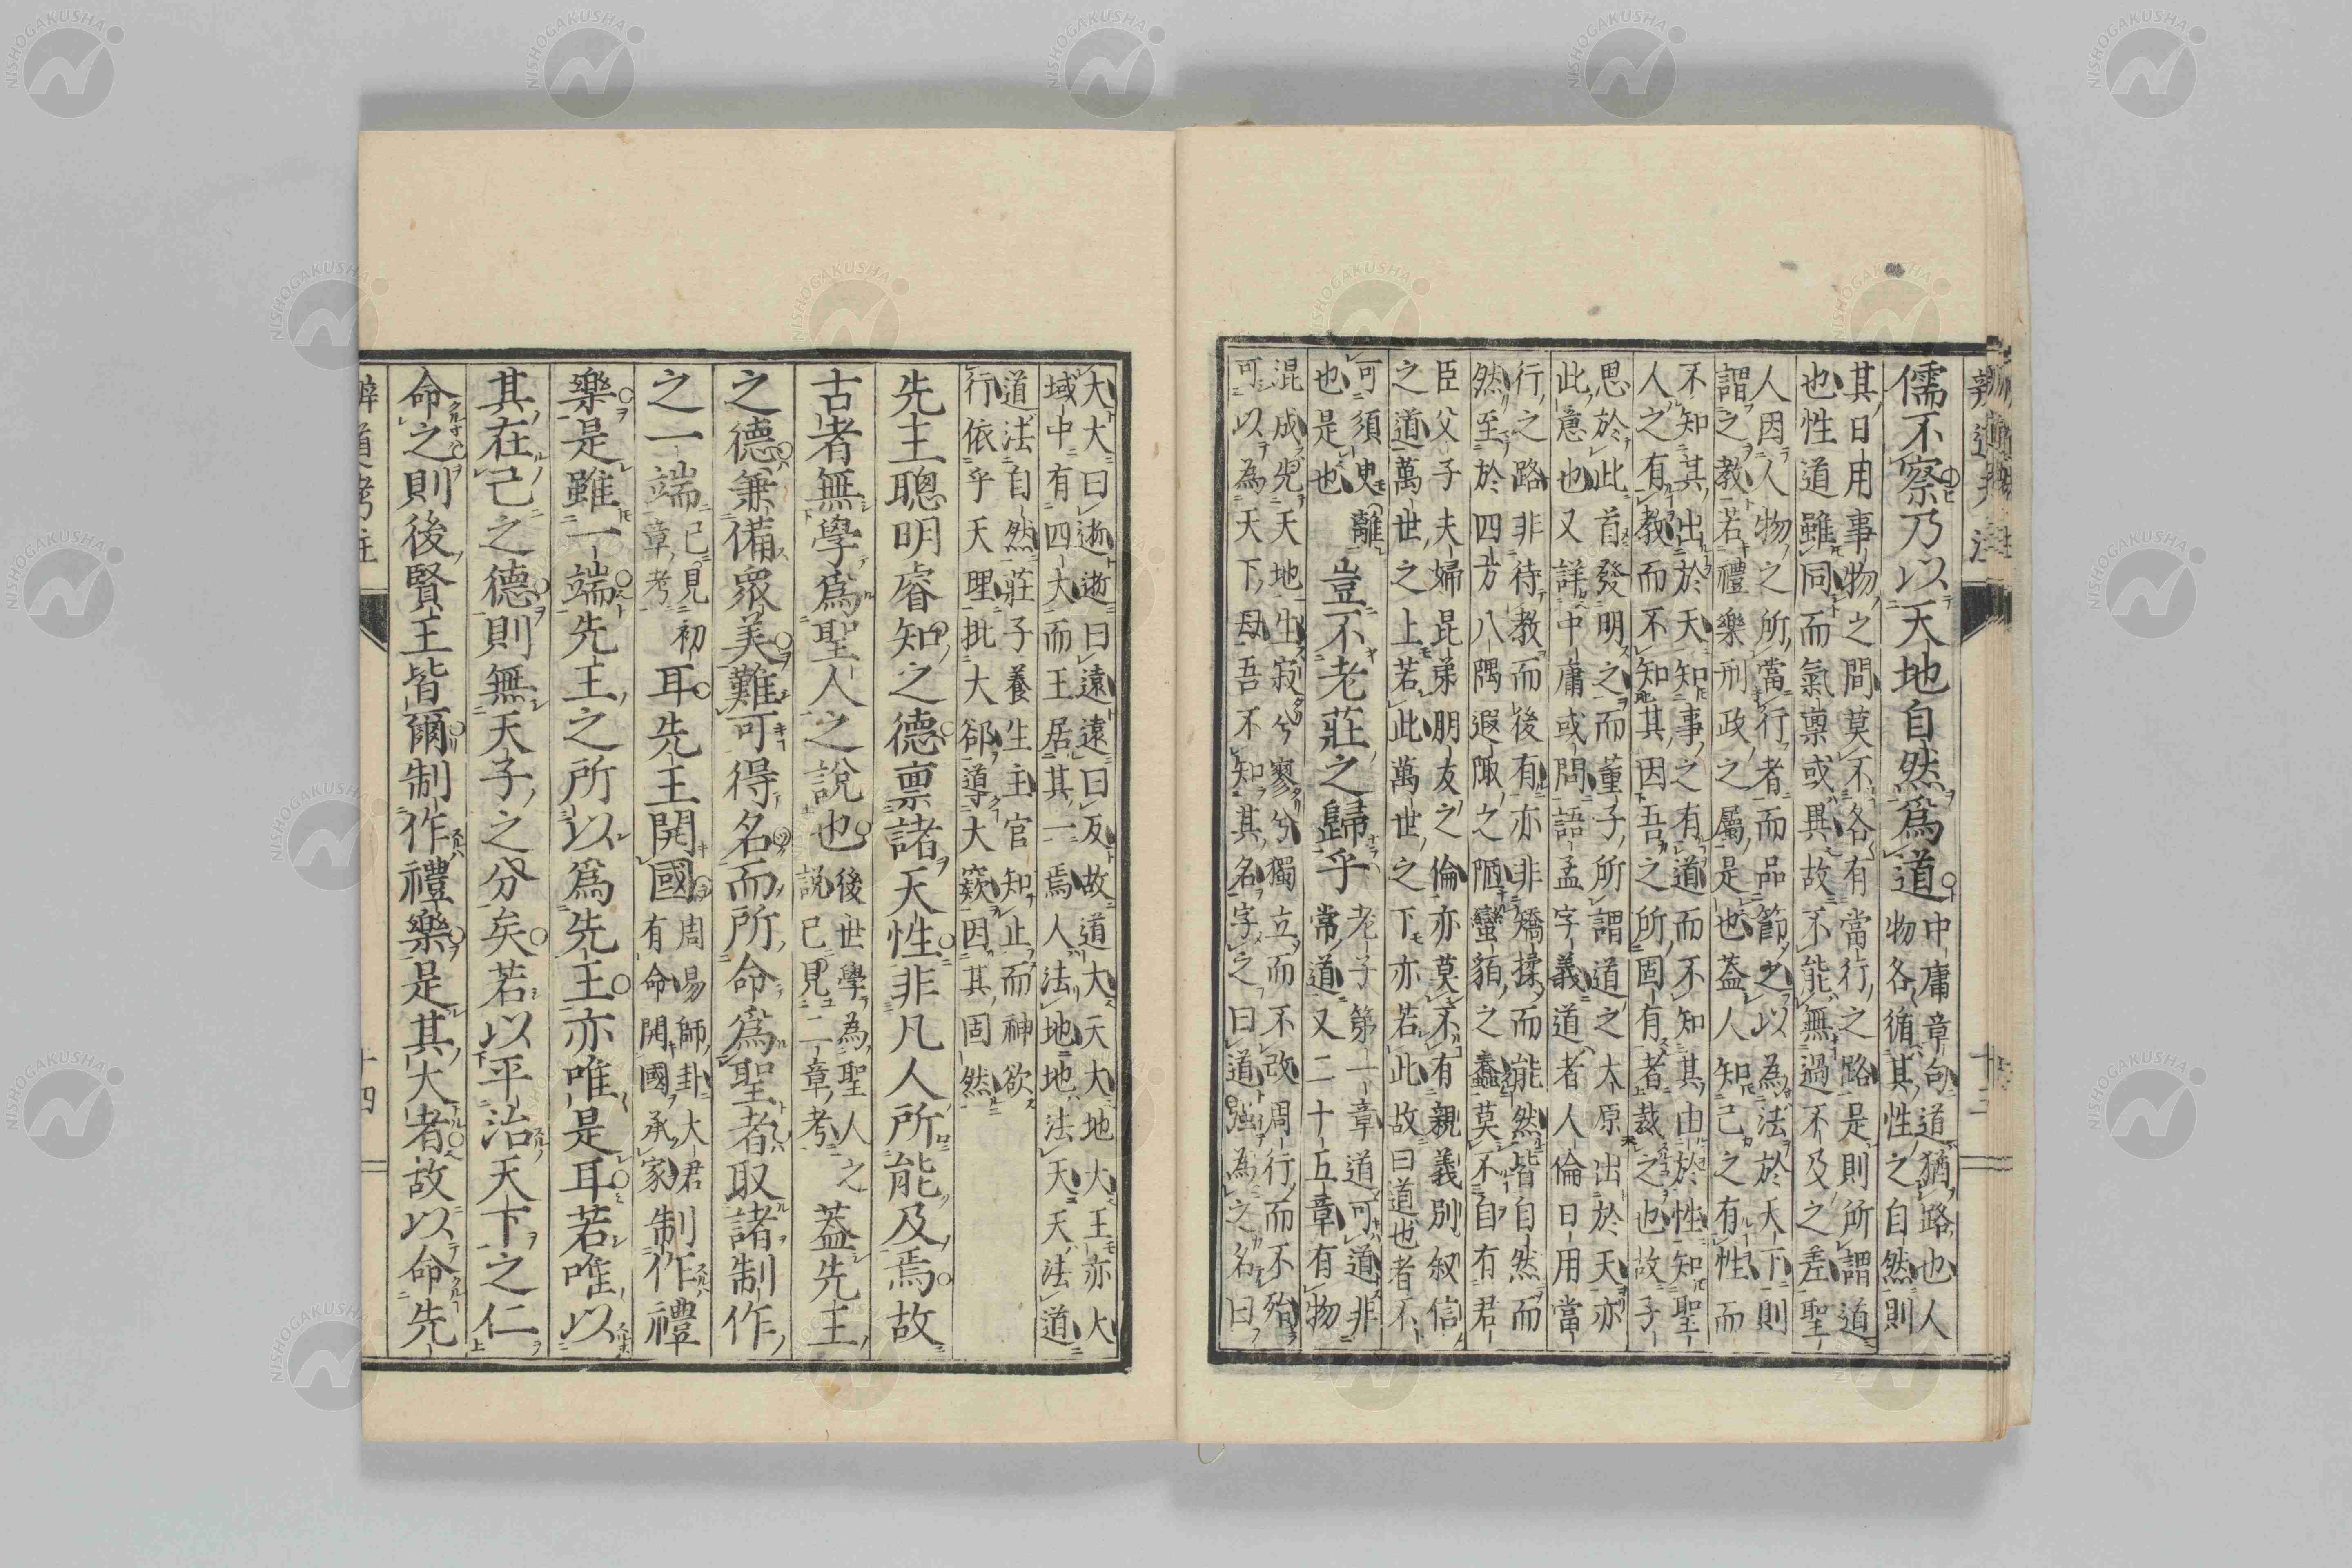 儒不察乃以天地自然爲道
中庸章句道猶路也人
物各循其性之自然則
其日用事物之間莫不各有當行之路是則所謂道
也性道雖同而氣稟或異故不能無過不及之差聖
人因人物之所當行者而品節之以為法於天下則
謂之教若禮樂刑政之屬是也蓋人知己之有性而
不知其出於天知事之有道而不知其由於性知聖
人之有教而不知其因吾之所固有者裁之也故子
思於此首發明之而董子所謂道之大原出於天亦
此意也又詳中庸或問語孟字義道者人倫日用當
行之路非待教而後有亦非矯揉而能然皆自然而
然至於四方八隅遐陬之陋蠻貊之蠢莫不自有君
臣父子夫婦昆弟朋友之倫亦莫不有親義別叙信
之道萬世之上若此萬世之下亦若此故曰道也者不
可須臾離
也是也
豈不老莊之歸乎
老子第一章道可道非
常道又二十五章有物
混成先天地生寂兮寥兮獨立而不改周行而不殆
可以為天下母吾不知其名字之曰道強為之名曰
大大曰逝逝曰遠遠曰反故道大天大地大王亦大
域中有四大而王居其一焉人法地地法天天法道
道法自然莊子養生主官知止而神欲
行依乎天理批大郤導大窾因其固然
先王聰明睿知之德禀諸天性非凡人所能及焉故
古者無學爲聖人之說也
後世學為聖人之
説已見二章考
蓋先王
之德兼備衆美難可得名而所命爲聖者取諸制作
之一端
已見初
章考
耳先王開國
周易師卦大君
有命開國承家
制作禮
樂是雖一端先王之所以爲先王亦唯是耳若唯以
其在己之德則無天子之分矣若以平治天下之仁
命之則後賢王皆爾制作禮樂是其大者故以命先